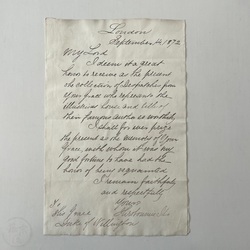 London
September 12, 1872
My Lord
I deem it a great
honor to receive as the present
the collection of Despatches from
Your Grace who represents the
illustrious house and title of
their famous author so worthily
I shall for ever prize
the present as the memento of Your
Grace, with whom it was my
good fortune to have had the
honor of being acquainted
I remain faithfully
and respectfully
Yours
To
His Grace
Duke of Wellington